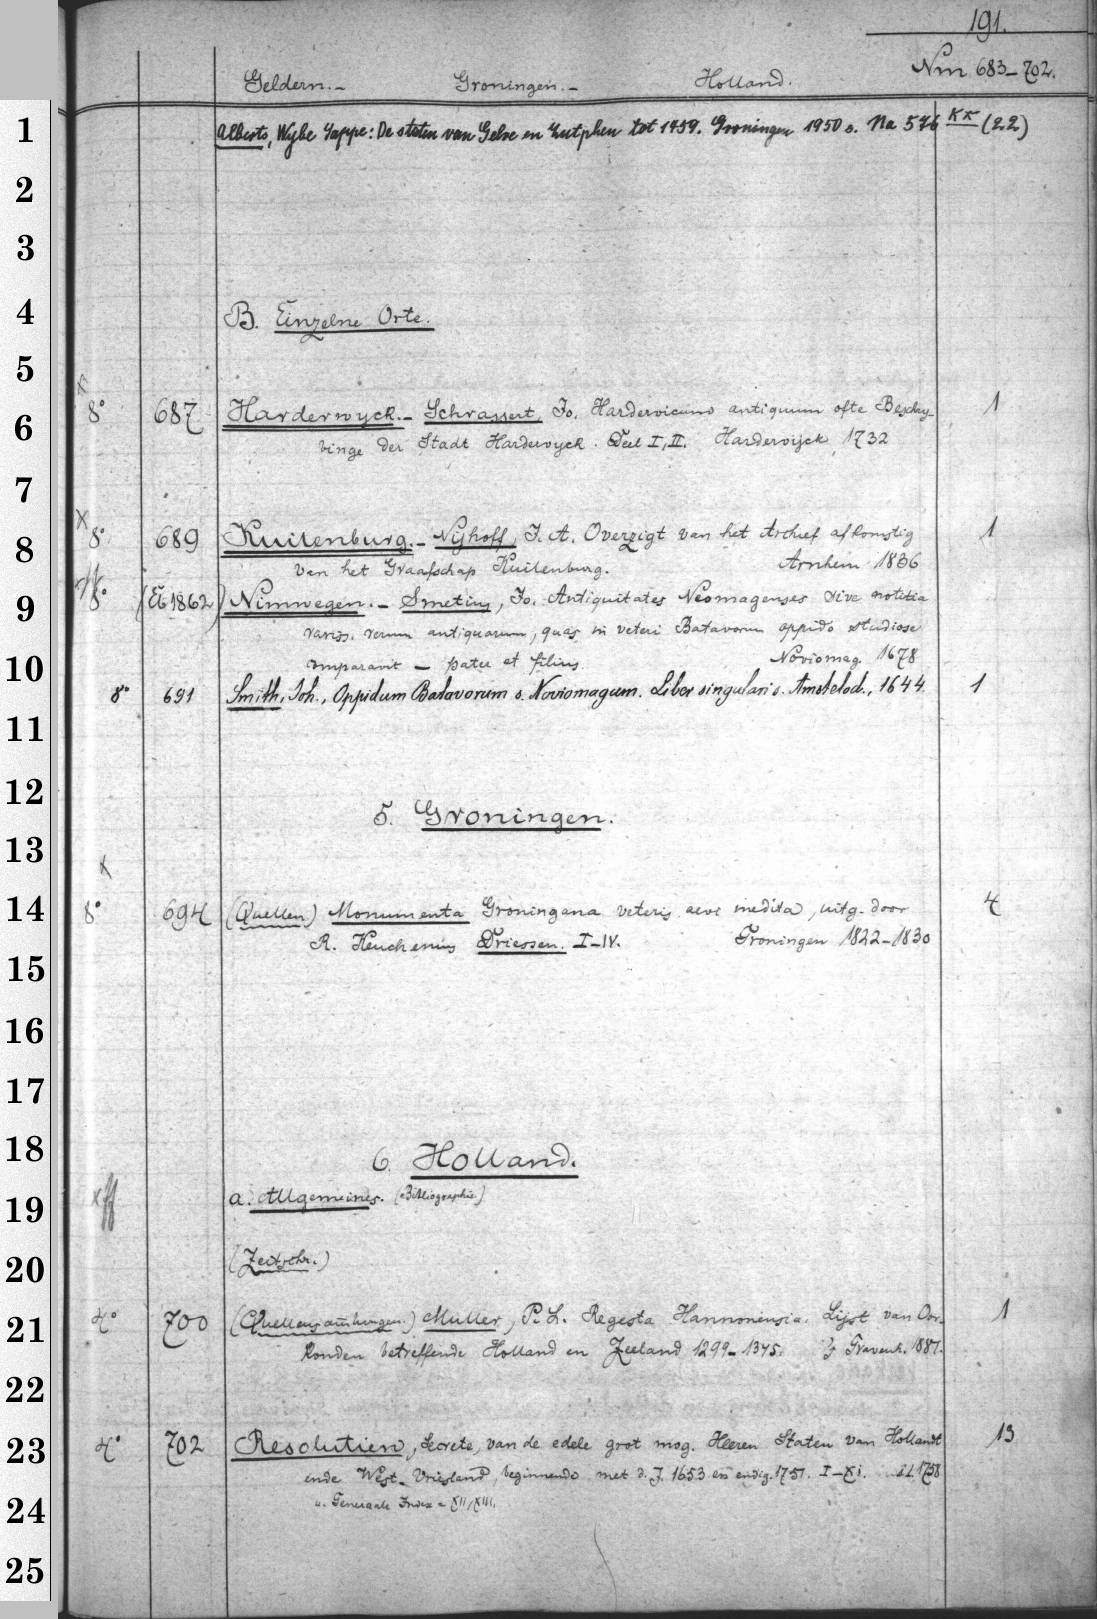 191.
Nrn 683-702.
Geldern.- Groningen.- Holland.
1
Alberts, Wybe Jappe: De staten van Gelre en Zutphen tot 1459. Groningen 1950 s. Na 576 kk (22)
2
3
4
B. Einzelne Orte.
5
6
8° 687 Harderwyck.- Schrassert, Jo. Hardervicum antiquum ofte Beschry- 1
vinge der Stadt Harderwyck. Deel I, II. Harderwijck 1732
7
8
8° 689 Kuilenburg.- Nijhoff, I. A. Overzigt van het Archief afkomstig 1
van het Graafschap Kuilenburg. Arnhem 1836
9
8° (Et 1862) Nimwegen.- Smetius, Jo. Antiquitates Neomagenses sive notitia
rariss. rerum antiquarum, quas in veteri Batavorum oppido studiose
10
comparavit - pater et filius. Noviomag. 1678
8° 691 Smith, Joh., Oppidum Batavorum s. Noviomagum. Liber singularis. Amstelod., 1644. 1
11
12
5. Groningen.
13
14
8° 694 (Quellen) Monumenta Groningana veteris aevi inedita, uitg. door 4
R. Keuchenius Driessen. I-IV. Groningen 1822-1830
15
16
17
18
6. Holland.
19
a. Allgemeines. (Bibliographie)
20
(Zeitschr.)
21
4° 700 (Quellensammlungen.) Muller, P. L. Regesta Hannonensia. Lijst van Oor- 1
konden betreffende Holland en Zeeland 1299-1345. 's Gravenh. 1881.
22
23
4° 702 Resolutien, Secrete, van de edele grot mog. Heeren Staten van Hollandt 13
ende West-Vriesland, beginnende met d. J. 1653 en endig. 1751. I-XI. s.l. 1758
24
u. Generaale Index = XII/XIII.
25